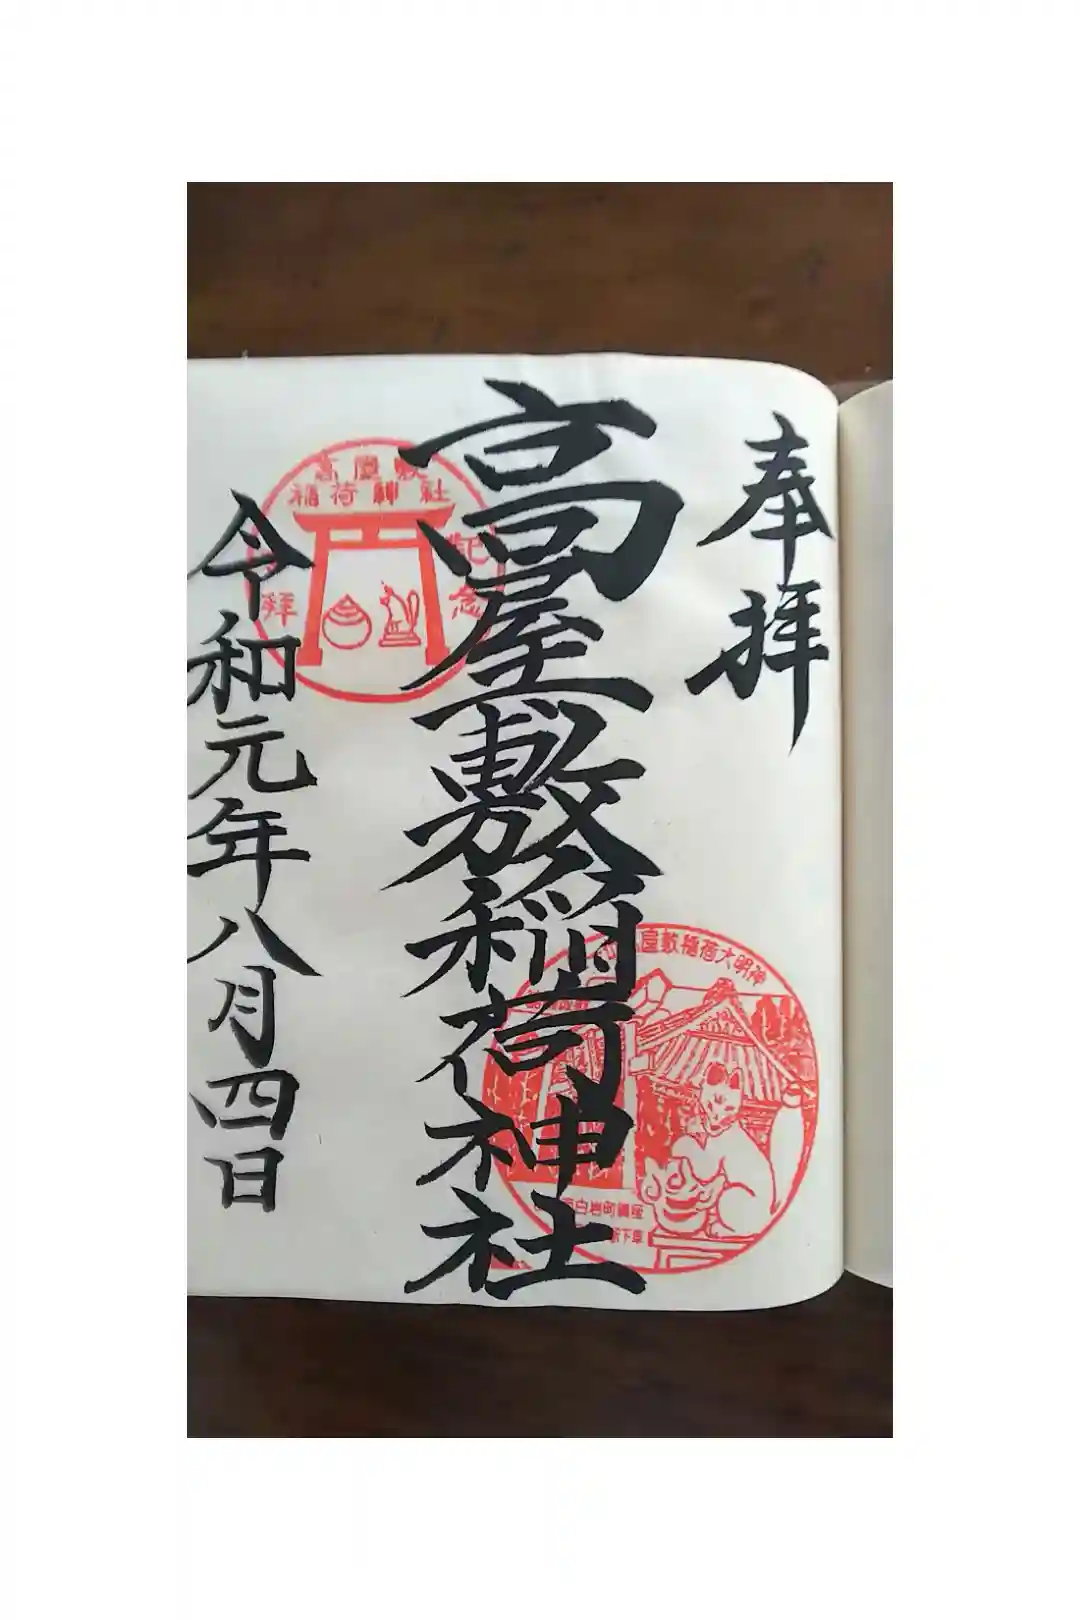 奉拝
高屋敷稲荷神社
令和元年八月四日
高屋敷
稲荷神社
拝
記念
屋敷稲荷大明神
白岩町鎮座
下車